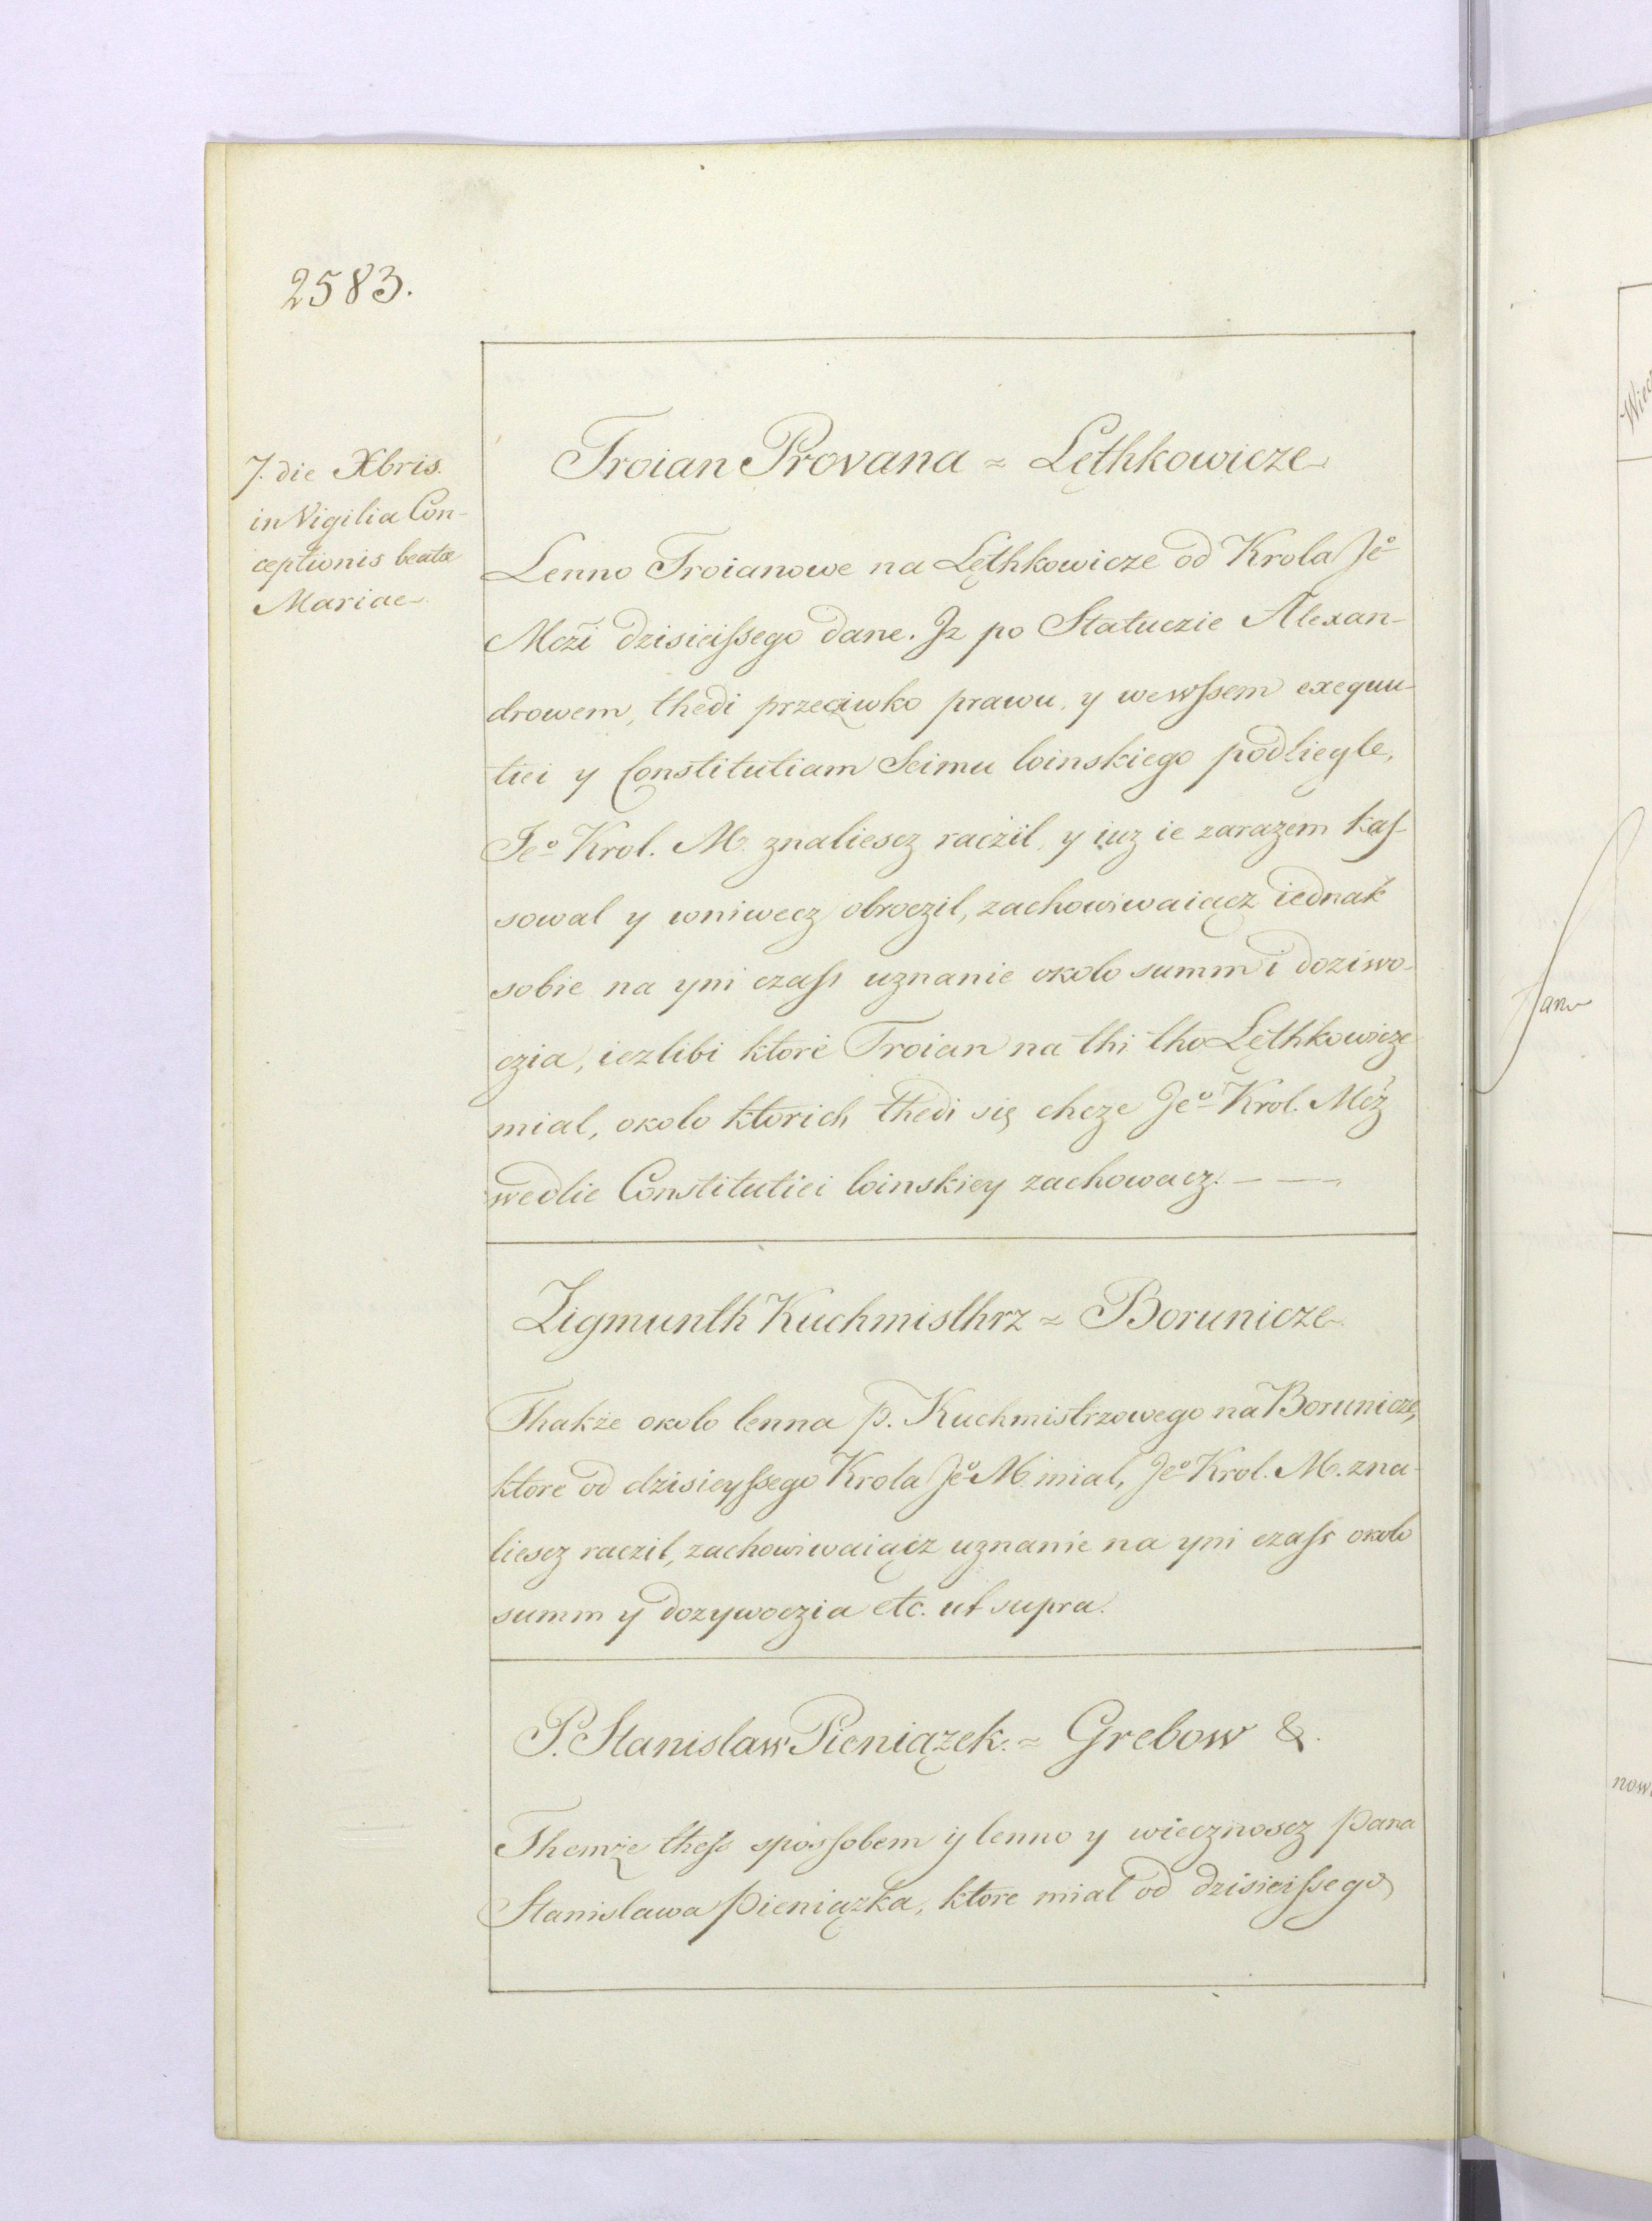 2583.
7. die Xbris.
in Vigilia Con-
ceptionis beatæ
Mariae
Troian Provana ≈ Lęthkowicze
Lenno Troianowe na Lęthkowicze od Krola Jeº
Mczi dzisieissego dane. Jz po Statuczie Alexan-
drowem, thedi przeciwko prawu, y wewssem exequu-
tiei y Constitutiam Seimu loinskiego podliegle,
Jeº Krol. M. znaliescz raczil, y iuz ie zarazem kas-
sowal y wniwecz obroczil, zachowiwaiącz iednak
sobie na yni czass uznanie okolo summ i doziwo-
czia, iezlibi ktore Troian na thi tho Lęthkowicze
mial, okolo ktorich thedi się chcze Jeº Krol. Mcz
wedlie Constitutiei loinskiey zachowacz. — — —
Zigmunth Kuchmisthrz ≈ Borunicze
Thakże okolo lenna p. Kuchmistrzowego na Borunicze,
ktore od dzisieyssego Krola Jeº M. mial, Jeº Krol. M. zna-
liescz raczil, zachowiwaiącz uznanie na yni czass okolo
summ y dozywoczia etc. ut supra.
P. Stanislaw Pieniązek. ≈ Grebow &.
Themże thess spossobem ij lenno y wiecznoscz Pana
Stanislawa Pieniązka, ktore mial od dzisieissego